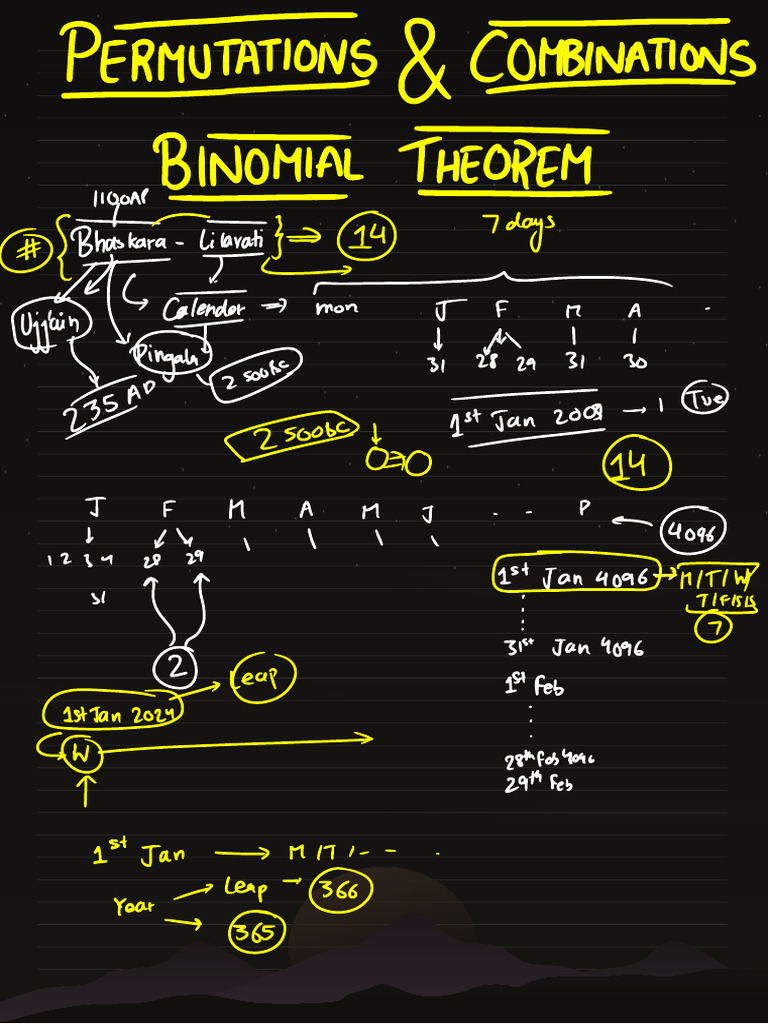 PERMUTATIONS & COMBINATIONS
BINOMIAL THEOREM
1100AD
# { Bhaskara - Lilavati } ⇒ 14
7 days
Ujjain
Calender ⇒ mon J F M A .
31 28 29 31 30
Pingala
2500BC
235 AD
1st Jan 2008 → 1 Tue
2500BC
O⇒O
14
J F M A M J - - P ← 4096
1 2 3 4 28 29
31
1st Jan 4096 → M/T/W/
T/F/S/S
7
31st Jan 4096
2
1st Feb
Leap
1st Jan 2024
W
28th Feb 4096
29th Feb
1st Jan → M/T/- - .
Year → Leap → 366
→ 365